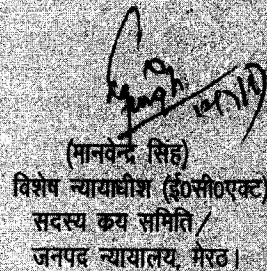 (मानवेन्द्र सिंह)
विशेष न्यायाधीश (ई0सी0एक्ट)
सदस्य कय समिति/
जनपद न्यायालय, मेरठ।